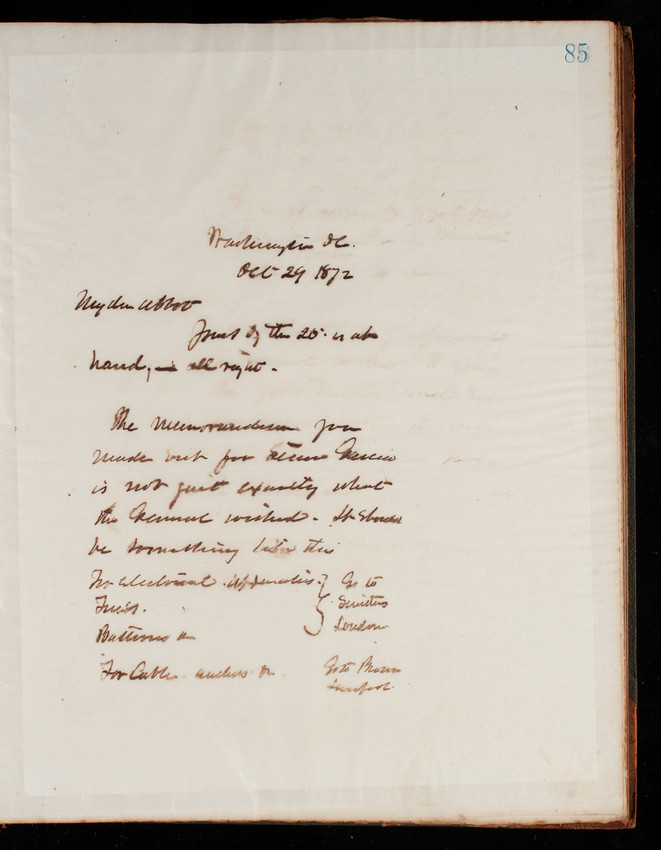 85
Washington DC.
Oct 29 1872
My dear Abbot
Yours of the 25 is at
hand, is all right.
The Memorandum you
made out for
is not just exactly what
the General wished. It should
be something like this
For electrical apparatus. } Go to
Fuses. Smiths
Batteries &c London
For Cable anchors &c. Go to Brown
Liverpool